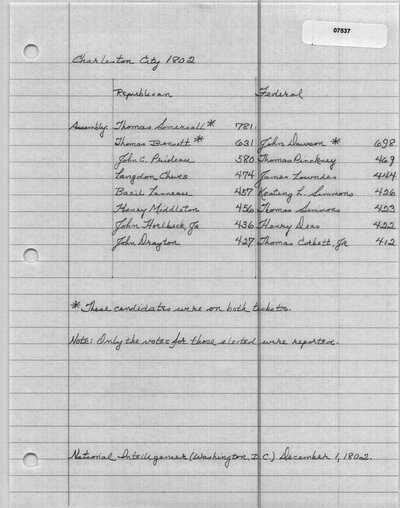 07537
Charleston City 1802
Republican Federal
Assembly: Thomas Somersall * 781
Thomas Bennett * 631 John Dawson * 698
John C. Prideau 580 Thomas Pinckney 469
Langdon Cheves 474 James Lowndes 444
Bazil Lanneau 457 Keating L. Simmons 426
Henry Middleton 456 Thomas Simmons 423
John Horlbeck, Jr 436 Henry Deas 422
John Drayton 427 Thomas Corbett, Jr. 412
* These candidates were on both tickets.
Note: Only the votes for those elected were reported.
National Intelligencer (Washington, D.C.) December 1, 1802.